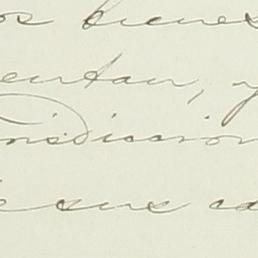 os bienes
entan, y
nsdiccion
e sus ca